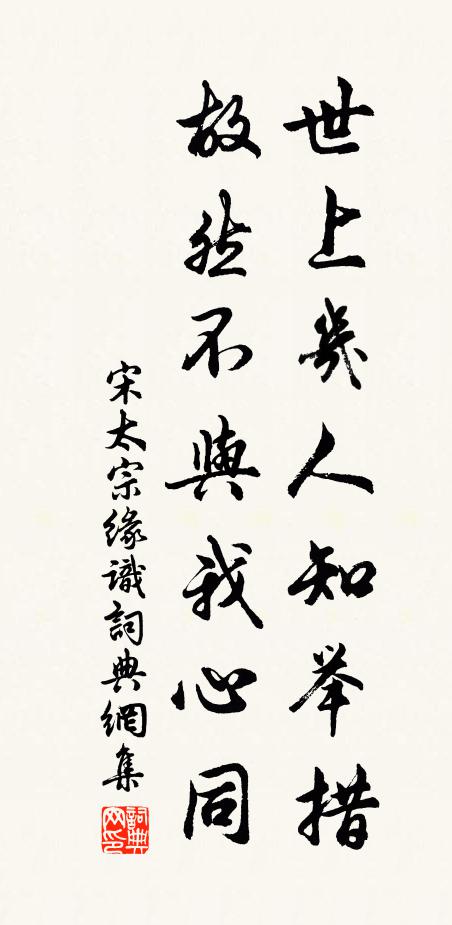 世上幾人知举措
故然不與我心同
宋太宗緣識詞典網集
詞典网印